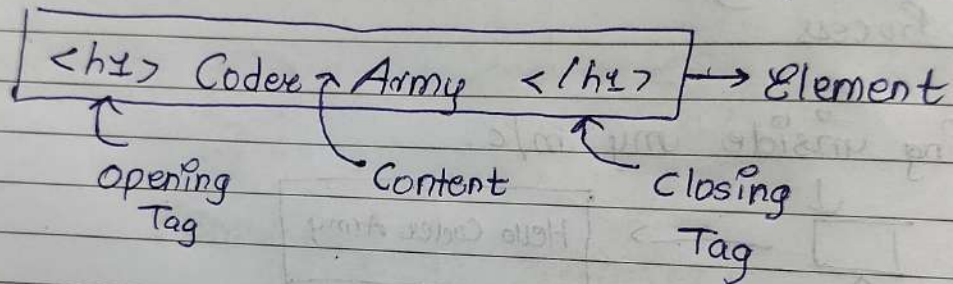 <h1> Coder Army </h1> → Element
Opening Tag
Content
Closing Tag